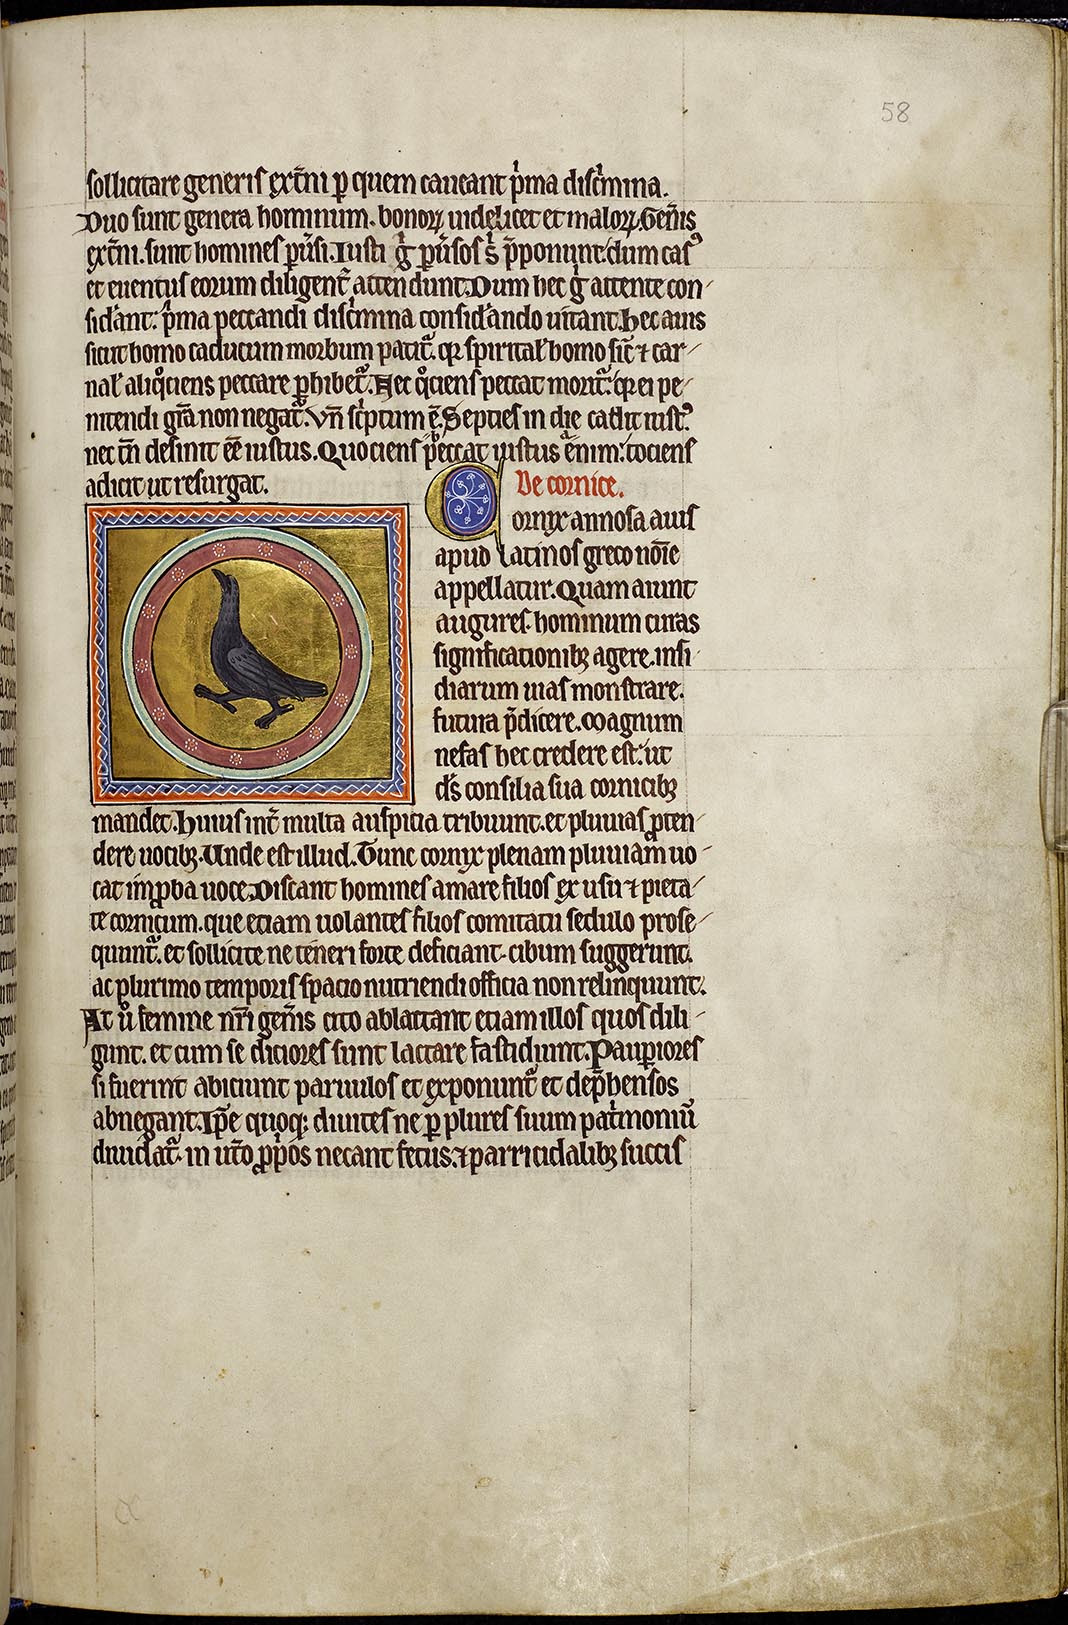 58
sollicitare generis ext̄ni ꝑ quem caueant pͥma discͥmina.
Duo sunt genera hominum. bonoꝝ uidelicet et maloꝝ. Gen̄is
ext̄ni. sunt homines ꝑu̓si. Iusti gͥ ꝑu̓sos s̓ p̄ponunt: dum casꝰ
et euentus eorum diligent̓ attendunt. Dum hec gͥ attente con
sid̓ant: pͥma peccandi discͥmina consid̓ando uitant. hec auis
sicut homo caducum morbum patit᷑. qꝛ spirital̓ homo sic̄ ⁊ car
nal̓ aliqͦciens peccare ꝑhibet᷑. Nec qͦciens peccat morit᷑: qꝛ ei pe
nitendi gr̄a non negat᷑. Vn̄ scͥptum ē. Septies in die cadit iustꝰ
nec tn̄ desinit eē iustus. Quociens peccat iustus enim: tociens
adicit ut resurgat.
De cornice.
Cornix annosa auis
apud latinos greco noīe
appellatur. Quam aiunt
augures. hominum curas
significationibꝫ agere. insi
diarum uias monstrare.
futura p̄dicere. Magnum
nefas hec credere est. ut
ds̄ consilia sua cornicibꝫ
mandet. Huius int̓ multa auspitia tribuunt. et pluuias ꝓten
dere uocibꝫ. Unde est illud. Tunc cornix plenam pluuiam uo
cat imꝓba uoce. Discant homines amare filios ex usu ⁊ pieta
te cornicum. que etiam uolantes filios comitatu sedulo prose
quunt᷑. et sollicite ne teneri forte deficiant. cibum suggerunt.
ac plurimo temporis spacio nutriendi officia non relinquunt.
At u̓o femine nr̄i gen̄is cito ablactant etiam illos quos dili
gunt. et cum se ditiores sunt lactare fastidiunt. Pauꝑiores
si fuerint abiciunt paruulos et exponunt᷑ et dep̄hensos
abnegant. Ip̄e quoqꝫ diuites ne ꝑ plures suum patͥmoniū
diuidat᷑. in ut̓o ꝓpͥos necant fetus. ⁊ parricidalibꝫ succis